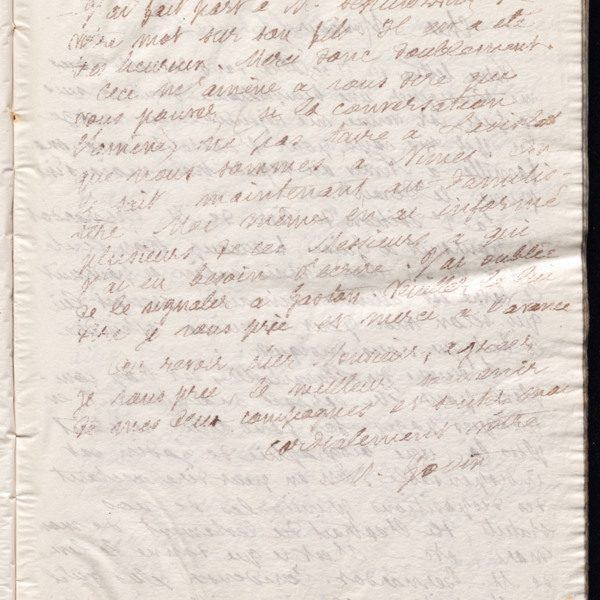 j'ai fait part à M.
votre mot sur son fils il en a été
très heureux. Merci donc doublement.
Ceci m'amène à vous dire que
vous pouvez si la conversation
l'amène, ne pas taire à
que nous sommes à Nimes. On
le sait maintenant au Familis
tère. Moi même en ai informé
plusieurs de ces Messieurs à qui
j'ai eu besoin d'écrire. J'ai oublié
de le signaler à Gaston. Veuillez le lui
dire je vous prie et merci à l'avance
Au revoir, cher Monsieur, agréez
je vous prie le meilleur souvenir
de mes deux compagnes et
cordialement vôtre
Godin